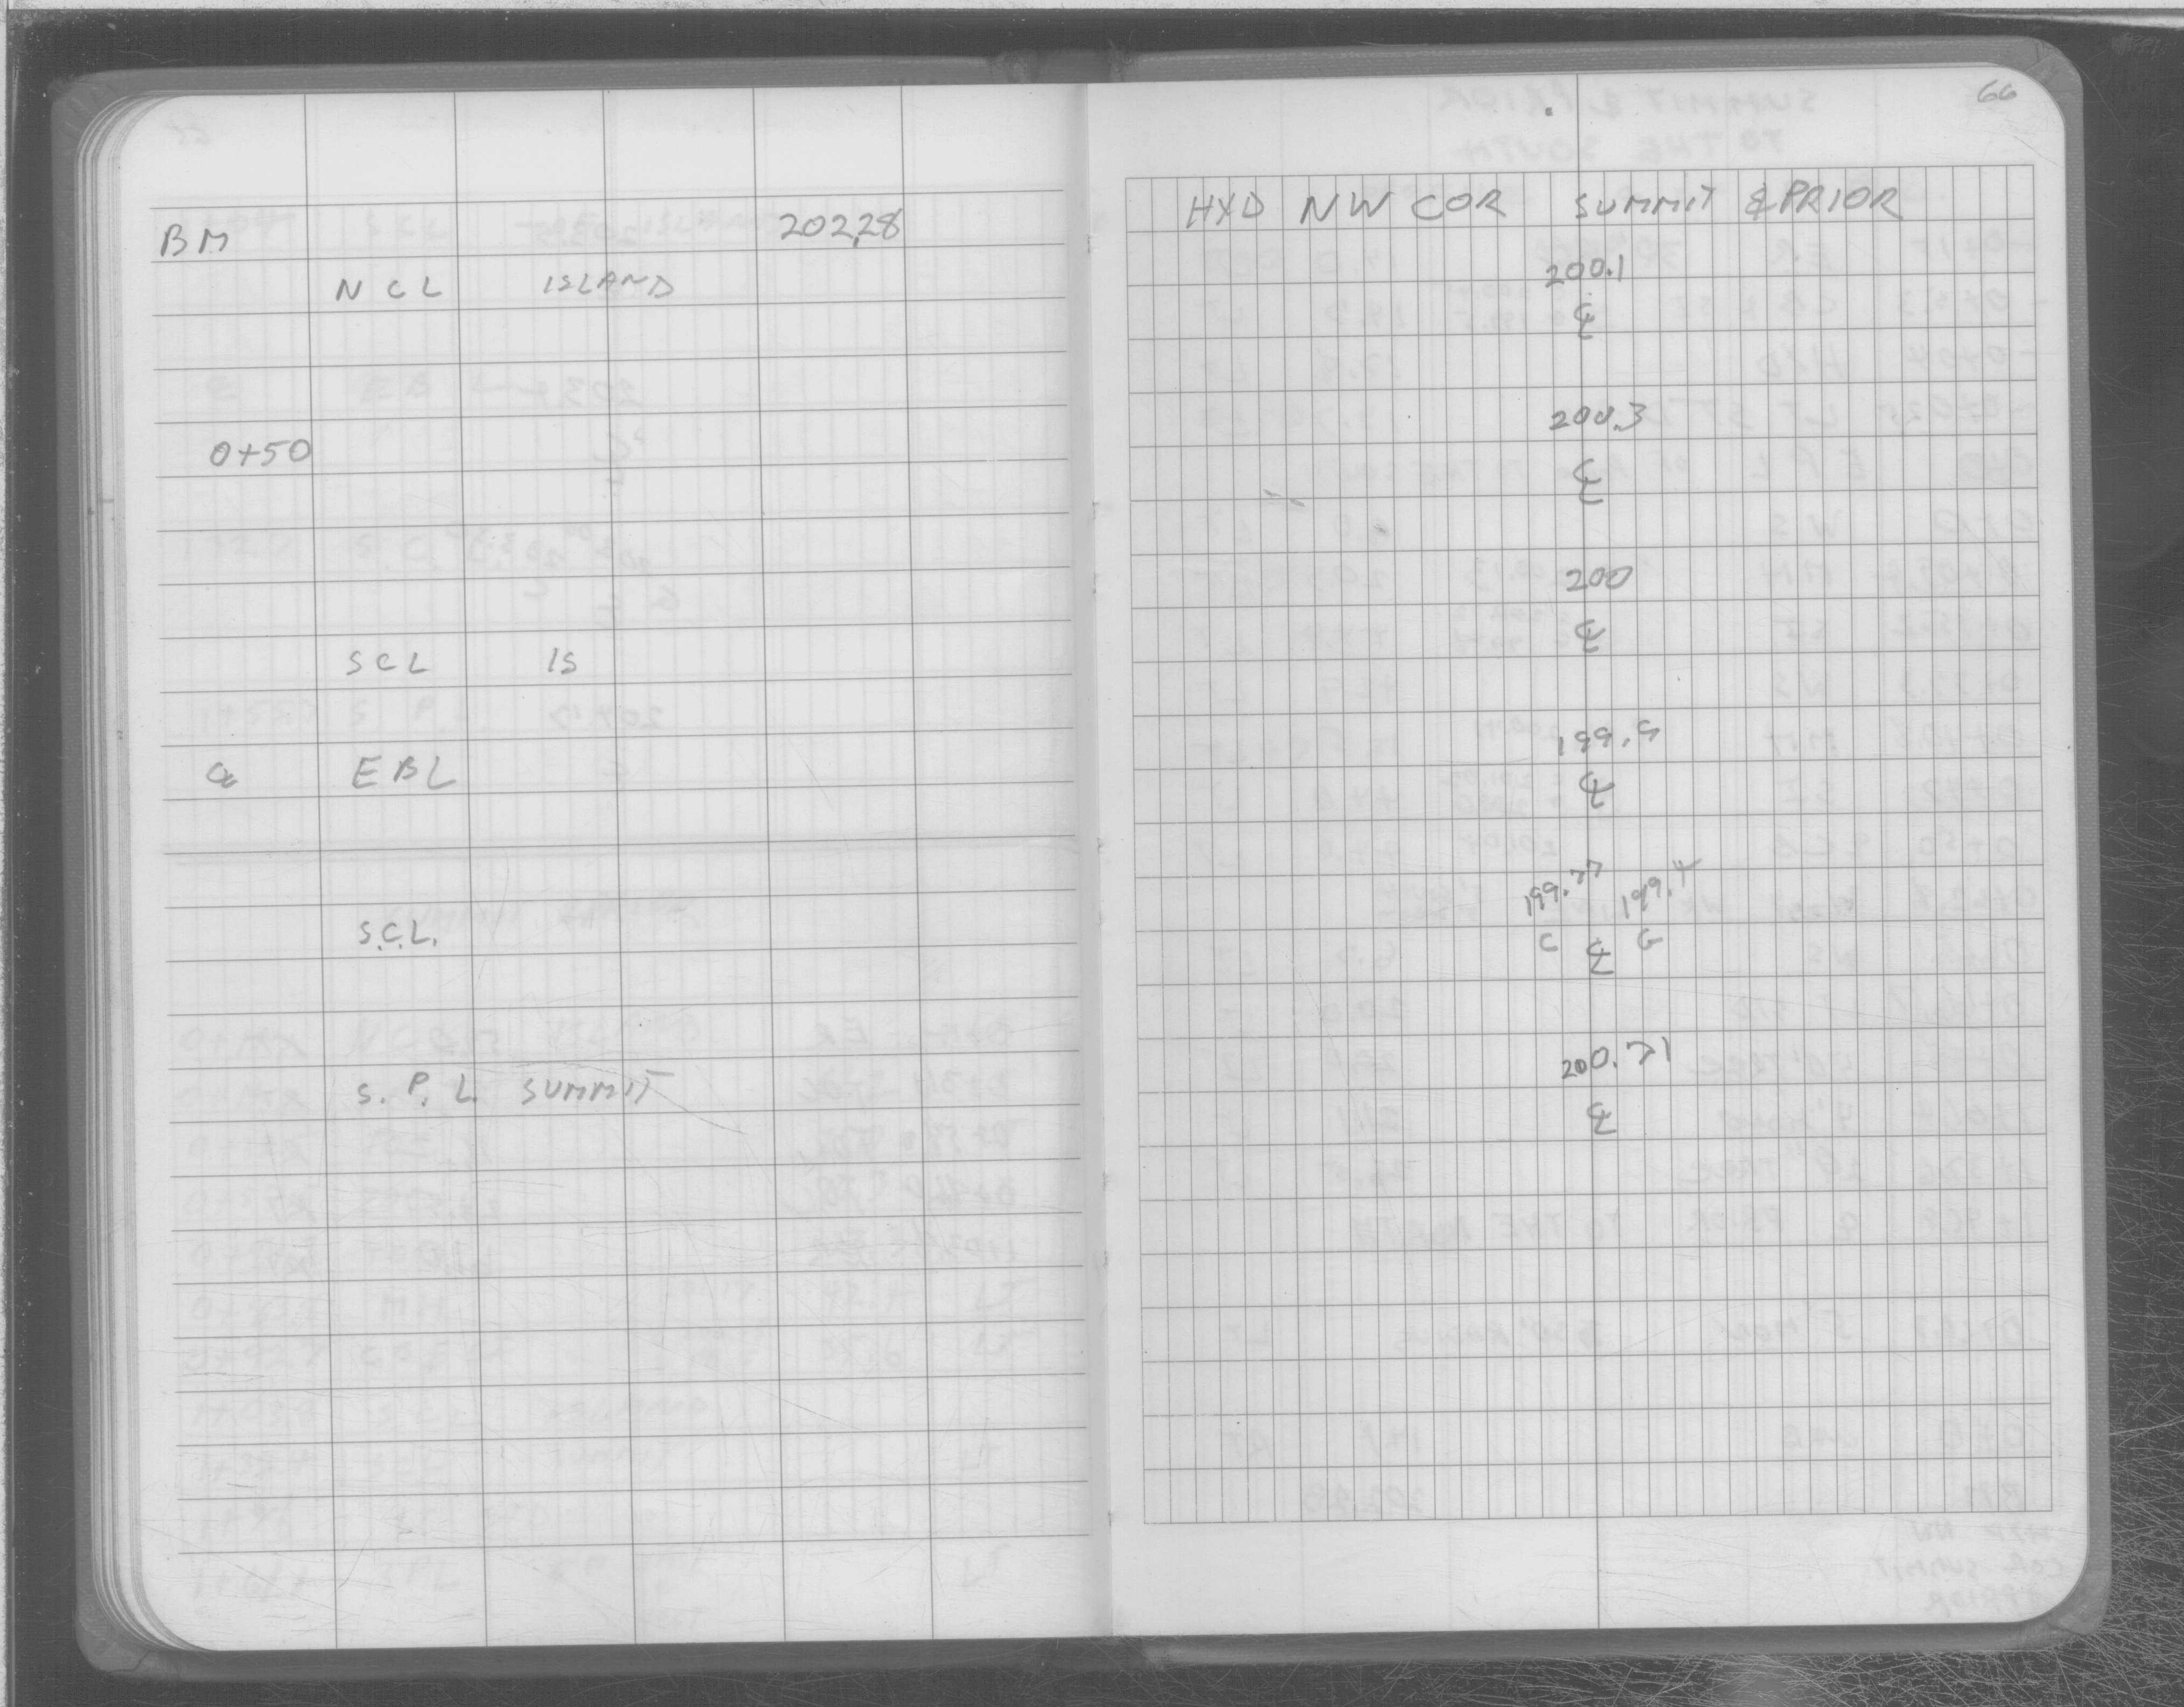 66
BM 202.28 HYD NW COR SUMMIT & PRIOR
NCL ISLAND 200.1
℄
0+50 200.3
℄
200
SCL IS ℄
199.9
℄ EBL ℄
199.77 199.4
S.C.L. C ℄ G
200.71
S. P. L. SUMMIT ℄